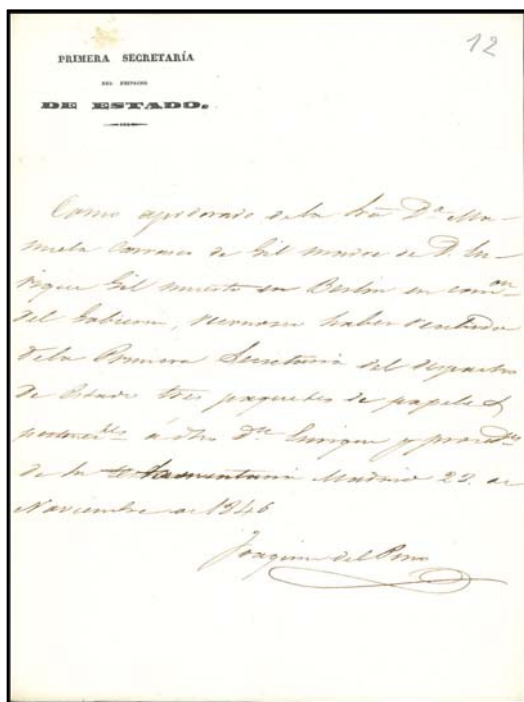 12
PRIMERA SECRETARÍA
DEL DESPACHO
DE ESTADO.
Como apoderado de la Sra. Dª Ma-
nuela Carrasco de Gil madre de D. En-
rique Gil muerto en Berlin en comon
del Gobierno, reconozco haber recibido
de la Primera Secretaria del despacho
de Estado tres paquetes de papeles
á dho Dn Enrique y
de la testamentaria Madrid 23. de
Noviembre de 1846
Joaquin del Pino